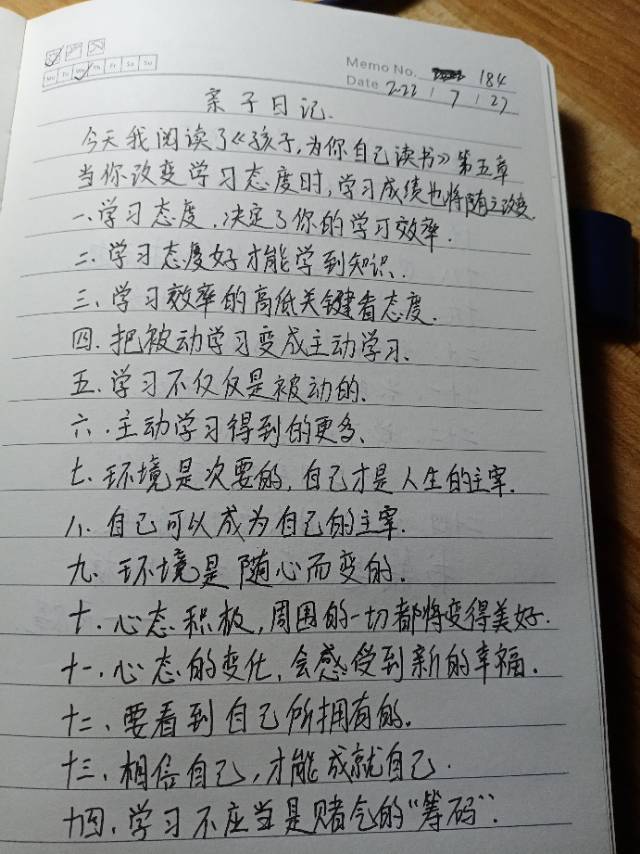 Mo Tu We Th Fr Sa Su
Memo No. 184
Date 2022 / 7 / 27
亲子日记.
今天我阅读了《孩子,为你自己读书》第五章
当你改变学习态度时,学习成绩也将随之改变.
一、学习态度,决定了你的学习效率.
二、学习态度好才能学到知识、
三、学习效率的高低关键看态度.
四.把被动学习变成主动学习、
五、学习不仅仅是被动的、
六、主动学习得到的更多、
七、环境是次要的,自己才是人生的主宰.
八、自己可以成为自己的主宰.
九、环境是随心而变的.
十、心态积极,周围的一切都将变得美好.
十一、心态的变化,会感受到新的幸福.
十二、要看到自己所拥有的.
十三、相信自己,才能成就自己.
十四、学习不应当是赌气的“筹码”.